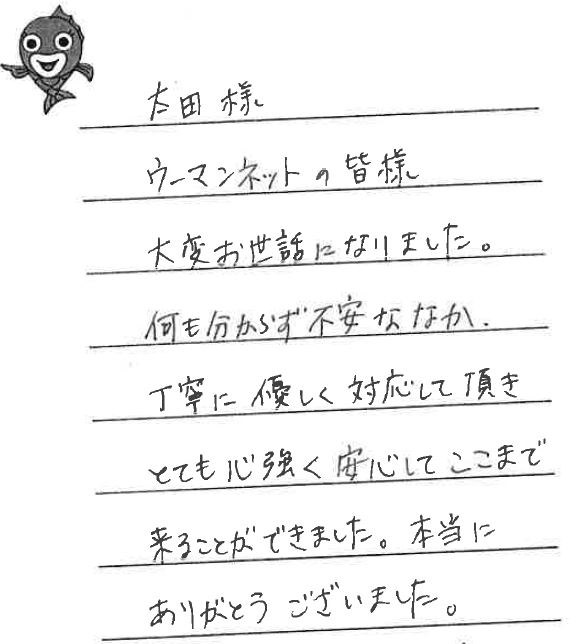 太田様
ウーマンネットの皆様
大変お世話になりました。
何も分からず不安ななか、
丁寧に優しく対応して頂き
とても心強く安心してここまで
来ることができました。本当に
ありがとうございました。